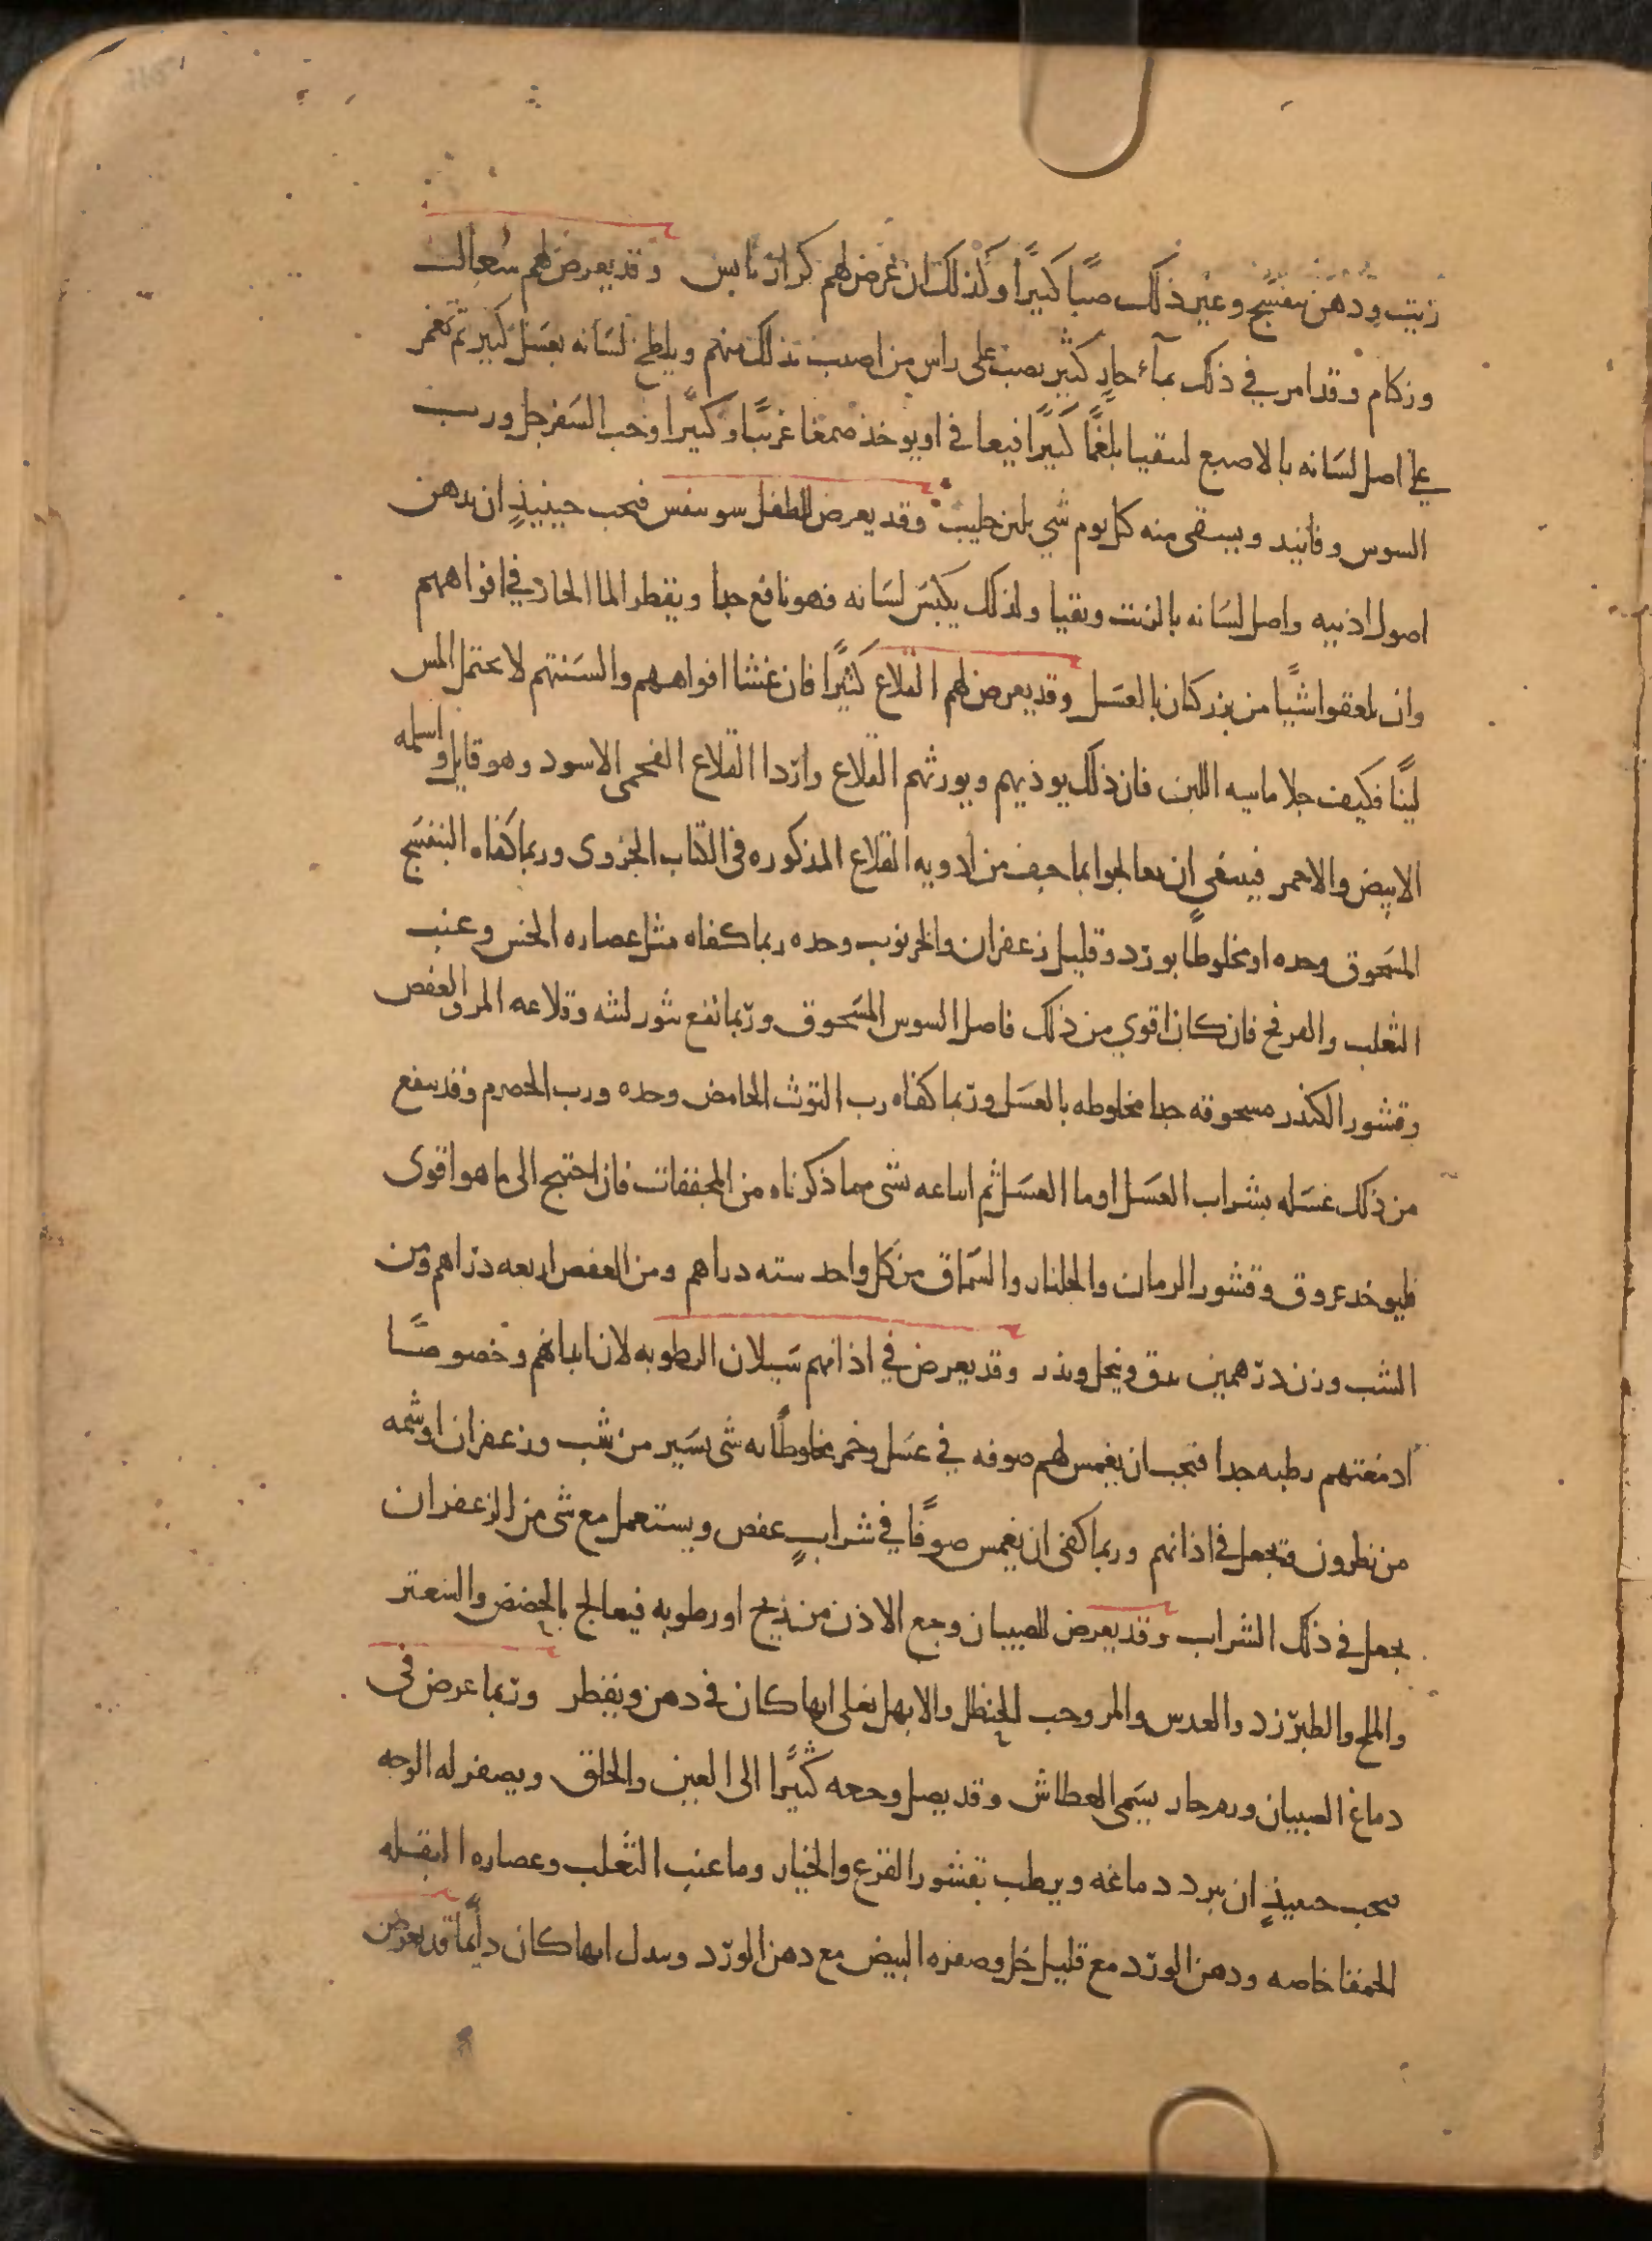 زيت ودهن بنفسج وغير ذلك صبًا كثيرًا وكذلك ان عرض لهم كزاز يابس وقد يعرض لهم سعال
وزكام وقد امر في ذلك بمآء حارٍ كثير يصب على راس من اصيب بذلك منهم ويلطخ لسَانه بعسَل كثير ثم تغمز
على اصل لسَانه بالاصبع لىتقيا بلغمًا كثيرًا فيعافى او يوخذ صمغا عربيًا وكثيرًا وحب السفرجل ورب
السوس وفانيد ويسقى منه كل يوم شي بلبن حليب وقد يعرض للطفل سو تنفس فيجب حينيذٍ ان يدهن
اصول اذنيه واصل لسَانه بالزيت ويقيا ولذلك يكبس لسَانه فهو نافع جدا ويقطر الما الحار في افواههم
وان يلعقوا شيًا من بزر كتان بالعسَل وقد يعرض لهم القلاع كثيرًا فان غشا افواههم والسَنتهم لا يحتمل المس
لينًا فكيف جلا مايية اللبن فان ذلك يوذيهم ويورثهم القلاع واردا القلاع الفحمي الاسود وهو قاتل واسلمه
الابيض والاحمر فينبغي ان يعالجوا بما خف من ادويه القلاع المذكوره في الكتاب الجزوى وربما كفاه البنفسَج
المسَحوق وحده او مخلوطًا بورد وقليل زعفران والخرنوب وحده ربما كفاه مثل عصاره الخس وعنب
الثعلب والعرفج فان كان اقوي من ذلك فاصل السوس المسَحوق وربما نفع بثور لثته وقلاعه المر والعفص
وقشور الكندر مسحوقه جدا مخلوطه بالعسَل وربما كفاه رب التوث الحامض وحده ورب الحصرم وقد ينفع
من ذلك غسَله بشراب العسَل او ما العسَل ثم اتباعه بشى مما ذكرناه من المجففات فان احتيج الى ما هو اقوى
فليوخذ عروق وقشور الرمان والجلنار والسَماق من كل واحد سته دراهم ومن العفص اربعه دراهم ومن
الشب وزن درهمين يدق وينخل ويذر وقد يعرض في اذانهم سَيلان الرطوبه لان ابدانهم وخصوصًا
ادمغتهم رطبه جدا فيجب ان يغمس لهم صوفه في عسَل وخمر مخلوطًا به شى يسَير من شب وزعفران او شمه
من نطرون ويجعل في اذانهم وربما كفى ان يغمس صوفًا في شرابٍ عفص ويستعمل مع شى من الزعفران
يجعل في ذلك الشراب وقد يعرض للصبيان وجع الاذن من ريح او رطوبه فيعالج بالحضض والسعتر
والملح والطبرزد والعدس والمر وحب الحنظل والابهل يغلى ايها كان في دهن ويقطر وربما عرض في
دماغ الصبيان ورم حار يسَمى العطاش وقد يصل وجعه كثيرًا الى العين والحلق ويصفر له الوجه
فيجب حينيذٍ ان يبرد دماغه ويرطب بقشور القرع والخيار وما عنب الثعلب وعصاره البقله
الحمقا خاصه ودهن الورد مع قليل خل وصفره البيض مع دهن الورد ويبدل ايها كان دايمًا قد يعرض